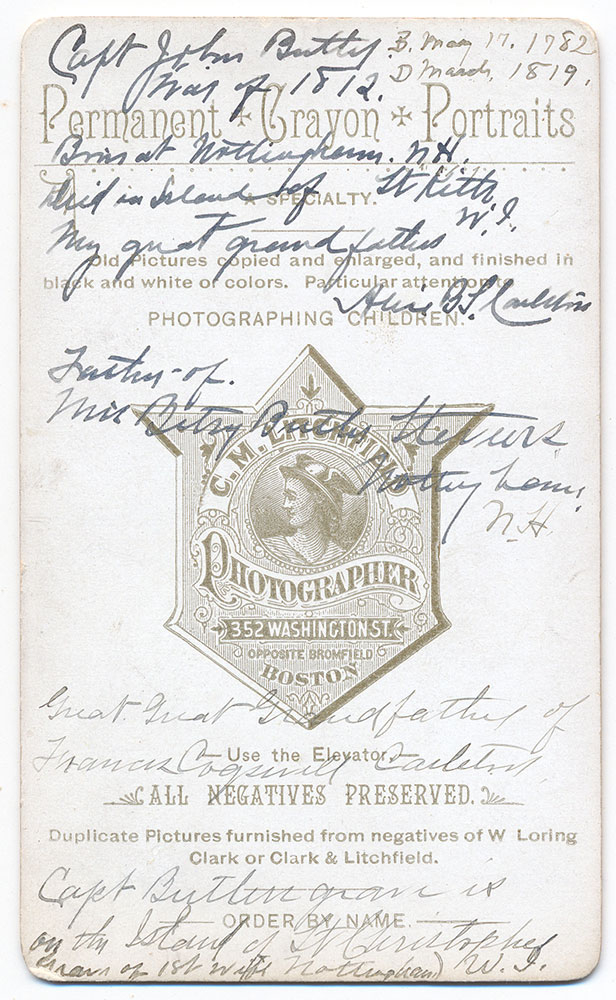 Capt John Butler B. May 17. 1782
War of 1812. D March, 1819.
Permanent Crayon Portraits
Born at Nottingham. N.H.
Died in Island of St Kitts
A SPECIALTY.
W.I.
My great grandfather
Old Pictures copied and enlarged, and finished in
black and white or colors. Particular attention to
Alice B. S. Carleton
PHOTOGRAPHING CHILDREN.
Father of.
Mrs Betsy Butler Stevens
C. M. LITCHFIELD
Nottingham,
N.H.
PHOTOGRAPHER
352 WASHINGTON ST.
OPPOSITE BROMFIELD
BOSTON
Great Great Grandfather of
Use the Elevator
Francis Cogswell Carleton,
ALL NEGATIVES PRESERVED.
Duplicate Pictures furnished from negatives of W Loring
Clark or Clark & Litchfield.
Capt Butler grave is
ORDER BY NAME.
on the Island of St Christopher
Grave of 1st wife Nottingham) W.I.